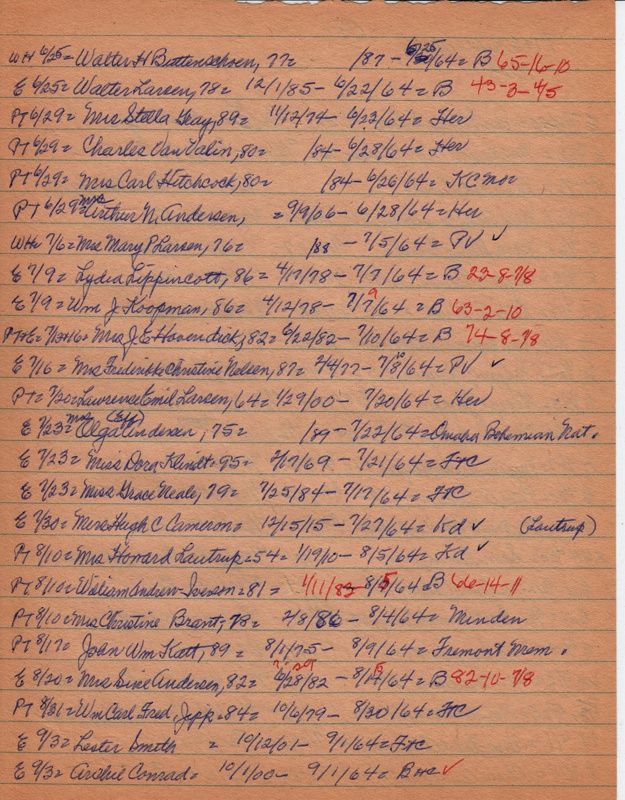 WH 6/25 = Walter H Battenschoen, 77 = /87 - 6/25/64 = B 65-16-10
E 6/25 = Walter Larsen, 78 = 12/1/85 - 6/22/64 = B 43-3-4/5
PT 6/29 = Mrs Stella Gray, 89 = 11/12/74 - 6/23/64 = Her
PT 6/29 = Charles Van Valin, 80 = /84 - 6/28/64 = Her
PT 6/29 = Mrs Carl Hitchcock, 80 = /84 - 6/26/64 = KC Mo
PT 6/29 = Mrs Arthur N. Andersen, = 9/9/06 - 6/28/64 = Her
WH 7/6 = Mrs Mary P Larsen, 76 = /88 - 7/5/64 = PV ✓
E 7/9 = Lydia Lippincott, 86 = 4/17/78 - 7/7/64 = B 23-8-7/8
E 7/9 = Wm J. Koopman, 86 = 4/12/78 - 7/7/64 = B 63-2-10
7/13+16 = Mrs J E Hovendick, 82 = 6/22/82 - 7/10/64 = B 74-8-7/8
E 7/16 = Mrs Fredirikke Christine Nelsen, 87 = 2/4/77 - 7/8/64 = PV ✓
PT = 7/20 = Lawrence Emil Larsen, 64 = 1/29/00 - 7/20/64 = Her
E 7/23 = Mrs Olga (Eff) Andersen, 75 = /89 - 7/22/64 = Omaha Bohemian Nat.
E 7/23 = Miss Dora Klindt = 95 = 2/17/69 - 7/21/64 = FHC
E 7/23 = Miss Grace Neale, 79 = 7/25/84 - 7/17/64 = FHC
E 7/30 = Mrs Hugh C Cameron = 12/15/15 - 7/27/64 = Kd ✓ (Lautrup)
PT 8/10 = Mrs Howard Lautrup = 54 = 1/19/10 - 8/5/64 = Kd ✓
PT 8/10 = William Andrew Iverson = 81 = 1/11/83 8/5/64 B 66-14-11
PT 8/10 = Mrs Christine Brant, 78 = 2/8/86 - 8/4/64 = Minden
PT 8/17 = John Wm Katt, 89 = 8/1/75 - 8/9/64 = Fremont Mem.
E 8/20 = Mrs Sine Andersen, 82 = 6/28/82 - 8/64 = B 82-10-7/8
PT 8/31 = Wm Carl Fred Jipp = 84 = 10/6/79 - 8/30/64 = FHC
E 9/3 = Lester Smith = 10/12/01 - 9/1/64 = FHC
E 9/3 = Archie Conrad = 10/1/00 - 9/1/64 = BHC ✓